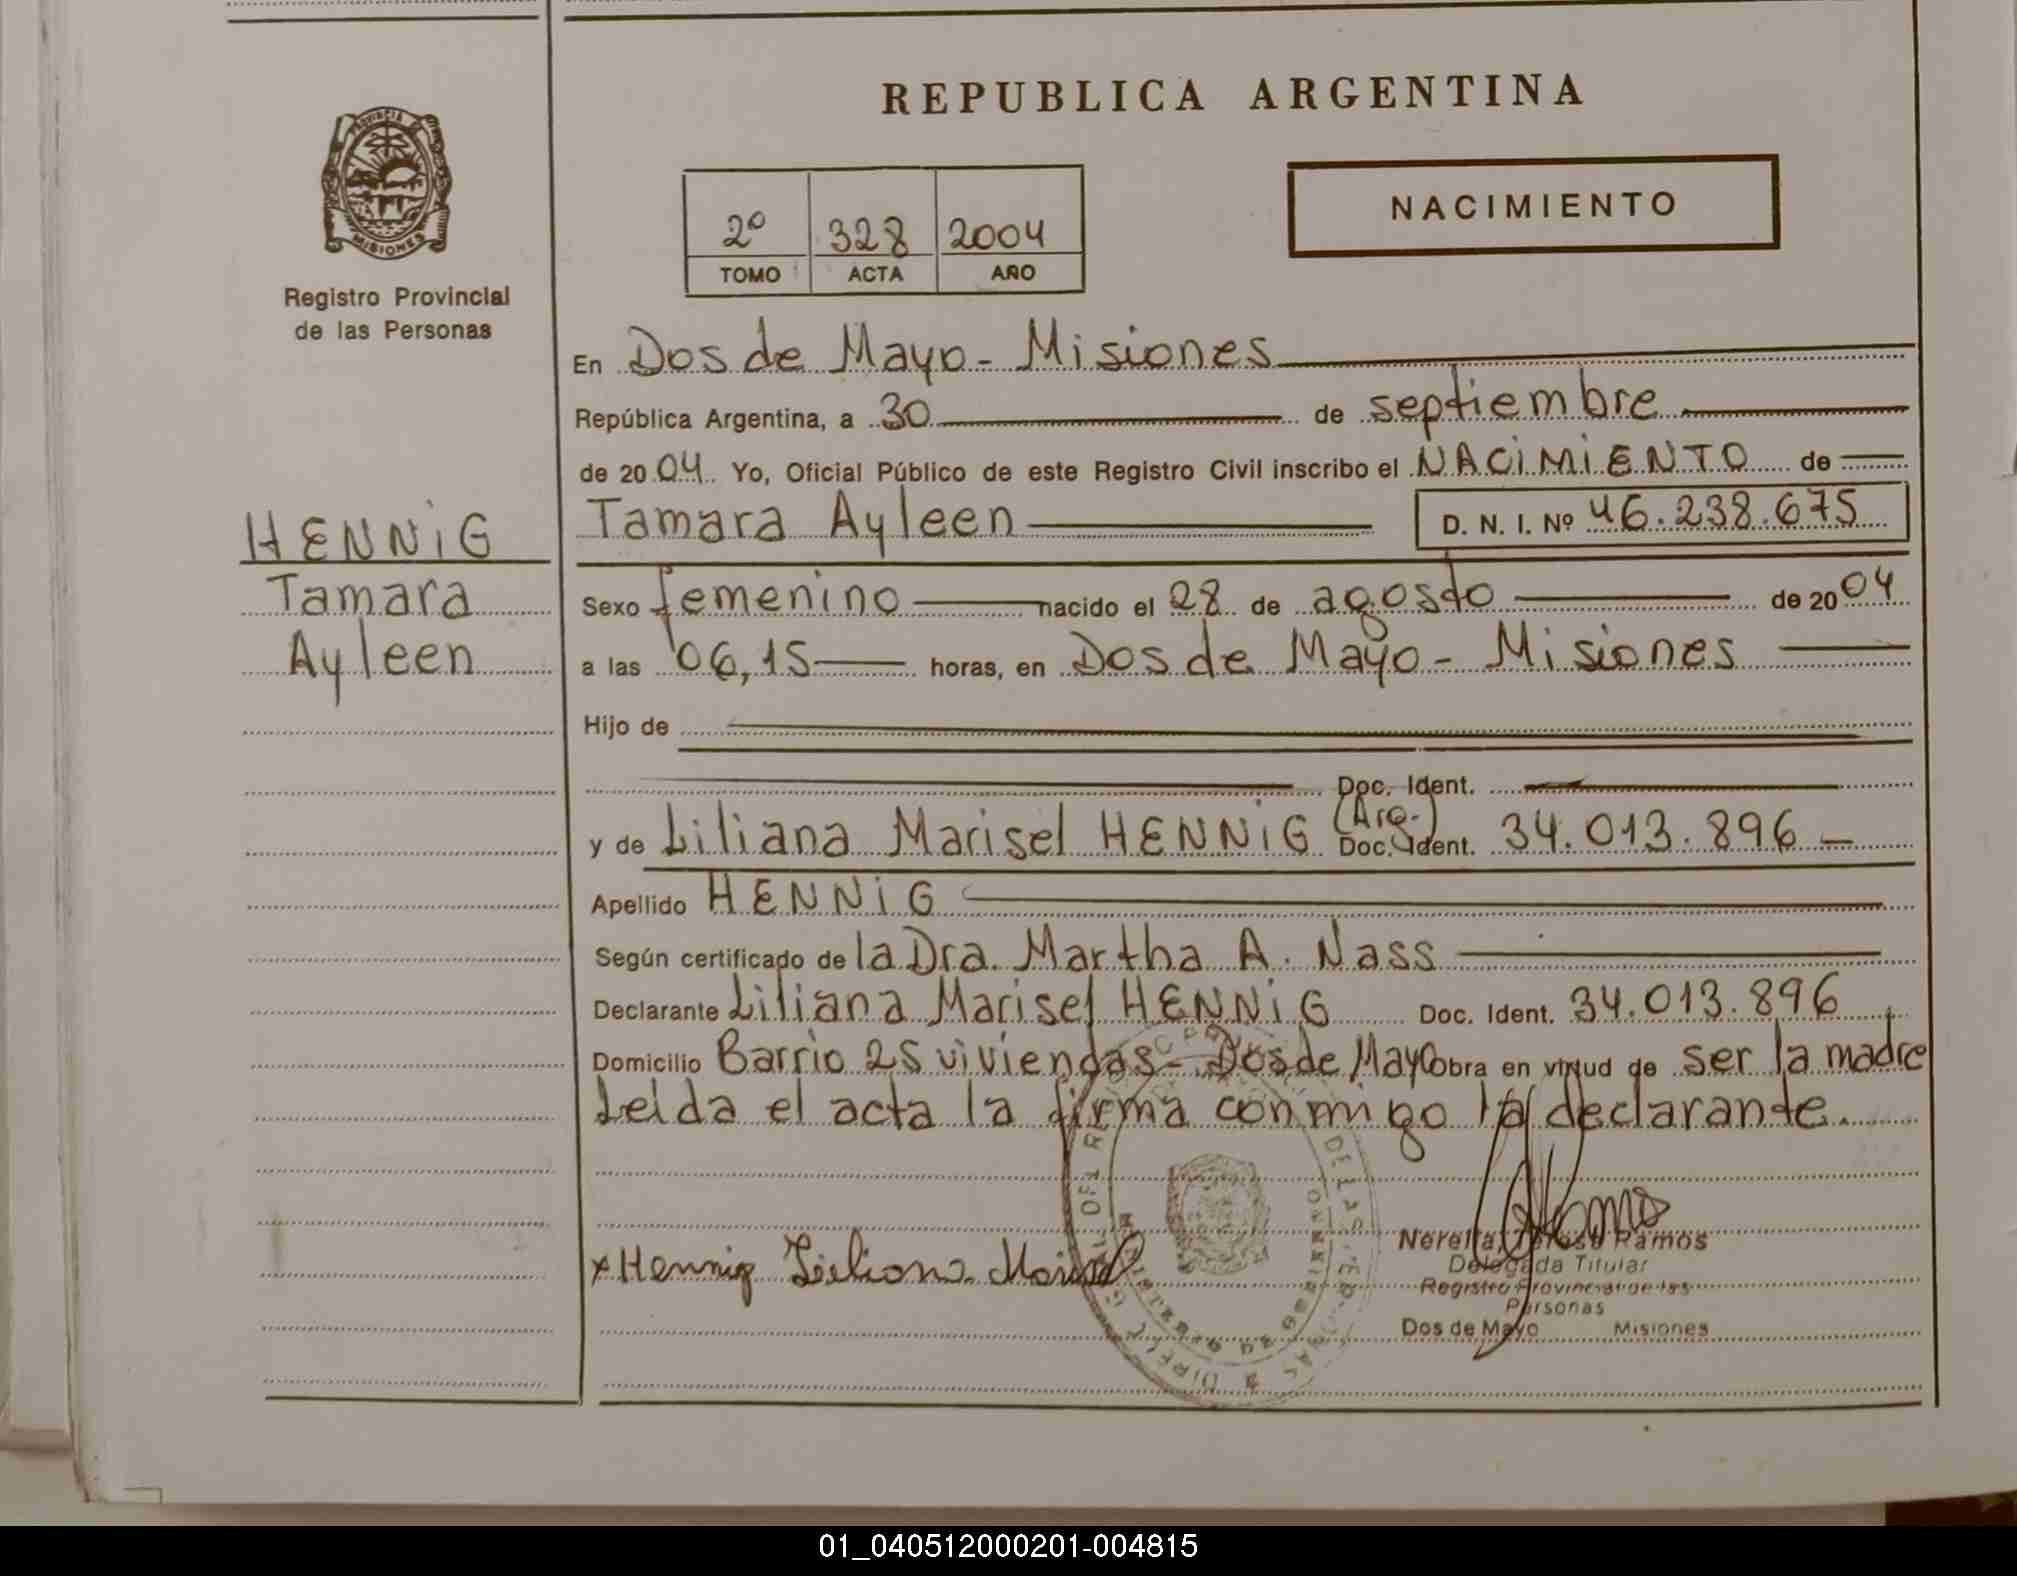 REPUBLICA ARGENTINA
PROVINCIA DE
MISIONES
Registro Provincial
de las Personas
2º 328 2004
TOMO ACTA AÑO
NACIMIENTO
En Dos de Mayo - Misiones
República Argentina, a 30 de septiembre
de 2004 Yo, Oficial Público de este Registro Civil inscribo el NACIMIENTO de
HENNIG
Tamara
Ayleen
Tamara Ayleen D. N. I. Nº 46.238.675
Sexo femenino nacido el 28 de agosto de 2004
a las 06,15 horas, en Dos de Mayo - Misiones
Hijo de
Doc. Ident.
y de Liliana Marisel HENNIG (Arg.) Doc. Ident. 34.013.896 -
Apellido HENNIG
Según certificado de la Dra. Martha A. Nass
Declarante Liliana Marisel HENNIG Doc. Ident. 34.013.896
Domicilio Barrio 25 viviendas - Dos de Mayo Obra en virtud de ser la madre
Leida el acta la firma conmigo la declarante.
x Hennig Liliana Marisel
Teresa Ramos
Delegada Titular
Registro Provincial de las
Personas
Dos de Mayo Misiones
01_040512000201-004815